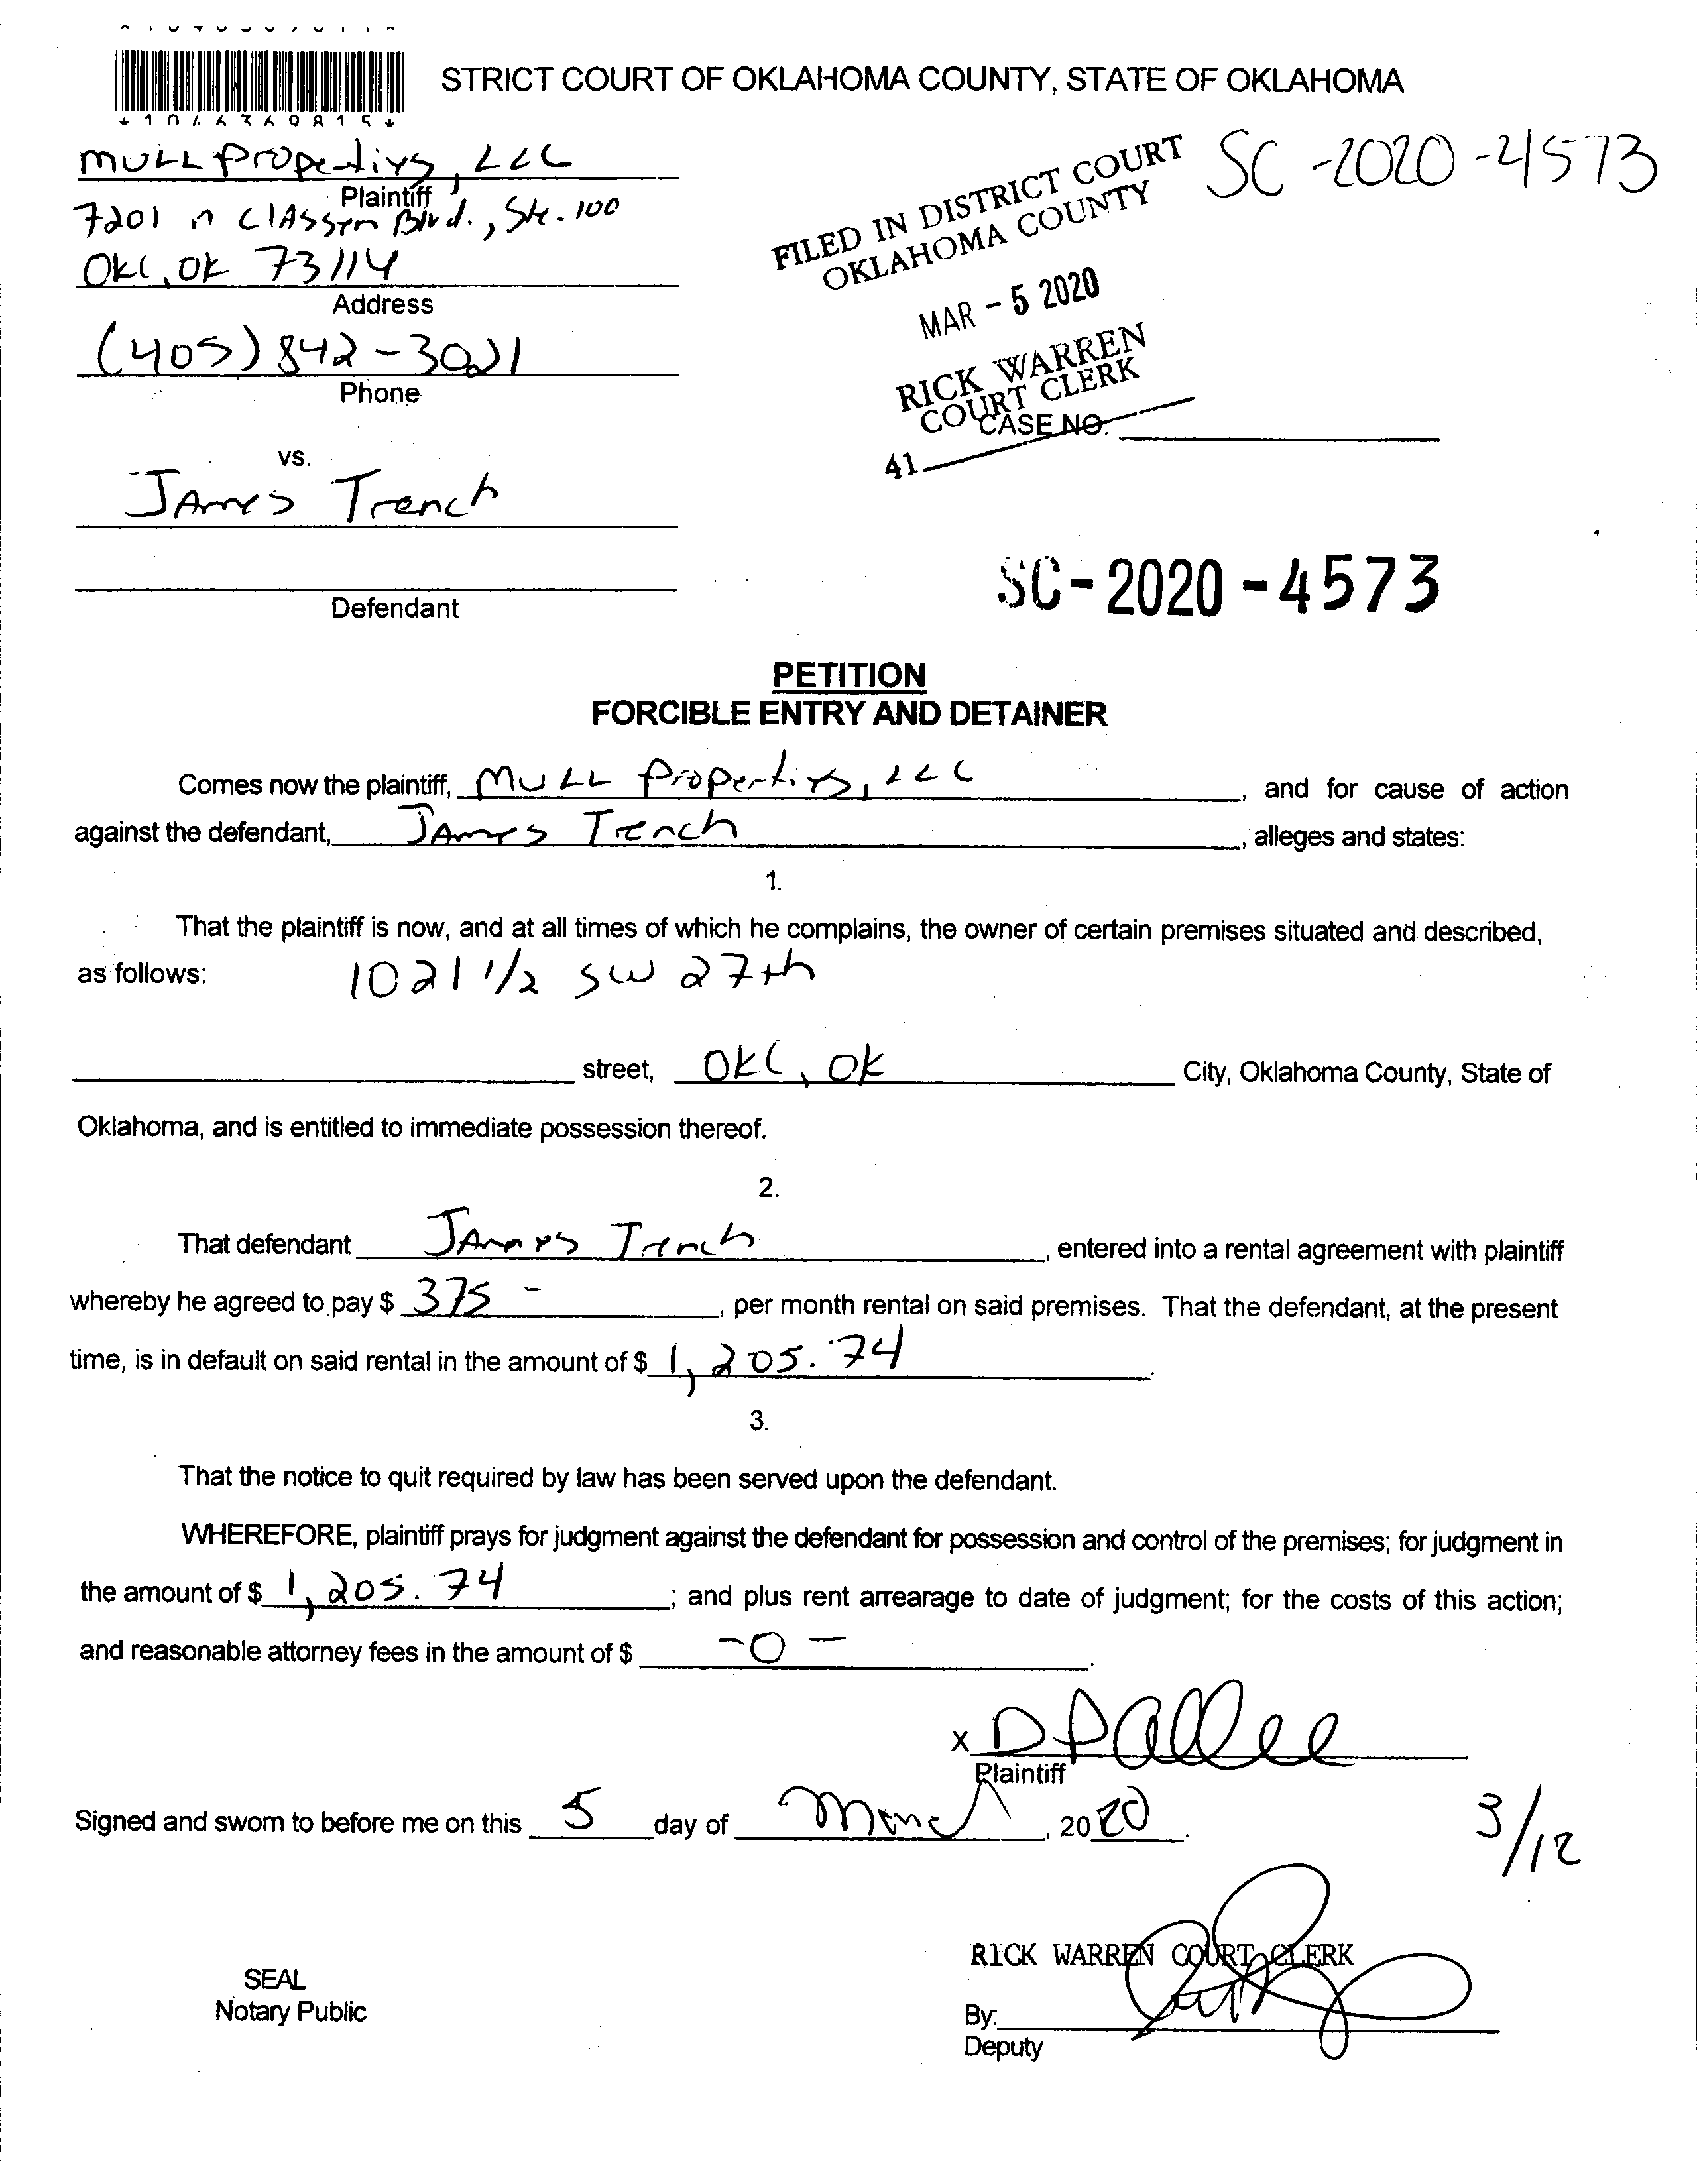 STRICT COURT OF OKLAHOMA COUNTY, STATE OF OKLAHOMA
*1046369815*
MULL Properties, LLC
Plaintiff
7201 n Classen Blvd., Ste. 100
OKC, OK 73114
Address
(405) 842-3021
Phone
SC-2020-4573
FILED IN DISTRICT COURT
OKLAHOMA COUNTY
MAR - 5 2020
RICK WARREN
COURT CLERK
CASE NO.
41
vs.
James Trench
Defendant
SC-2020-4573
PETITION
FORCIBLE ENTRY AND DETAINER
Comes now the plaintiff, MULL Properties, LLC, and for cause of action
against the defendant, James Trench, alleges and states:
1.
That the plaintiff is now, and at all times of which he complains, the owner of certain premises situated and described,
as follows: 1021 1/2 SW 27th
street, OKC, OK City, Oklahoma County, State of
Oklahoma, and is entitled to immediate possession thereof.
2.
That defendant James Trench, entered into a rental agreement with plaintiff
whereby he agreed to pay $ 375 -, per month rental on said premises. That the defendant, at the present
time, is in default on said rental in the amount of $ 1,205.74.
3.
That the notice to quit required by law has been served upon the defendant.
WHEREFORE, plaintiff prays for judgment against the defendant for possession and control of the premises; for judgment in
the amount of $ 1,205.74; and plus rent arrearage to date of judgment; for the costs of this action;
and reasonable attorney fees in the amount of $ -0-.
x D Pallee
Plaintiff
Signed and sworn to before me on this 5 day of March, 2020.
3/12
RICK WARREN COURT CLERK
SEAL
Notary Public
By:
Deputy